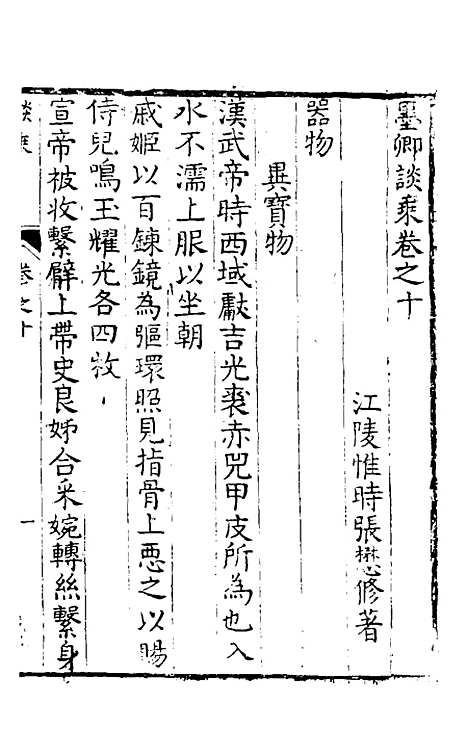 墨卿談乘卷之十
江陵惟時張懋修著
器物
異寶物
漢武帝時西域獻吉光裘赤兕甲皮所為也入
水不濡上服以坐朝
戚姬以百鍊鏡為彄環照見指骨上惡之以賜
侍兒鳴玉耀光各四枚
宣帝被收繫臂上帶史良娣合采婉轉絲繫身
談乘
卷之十
一